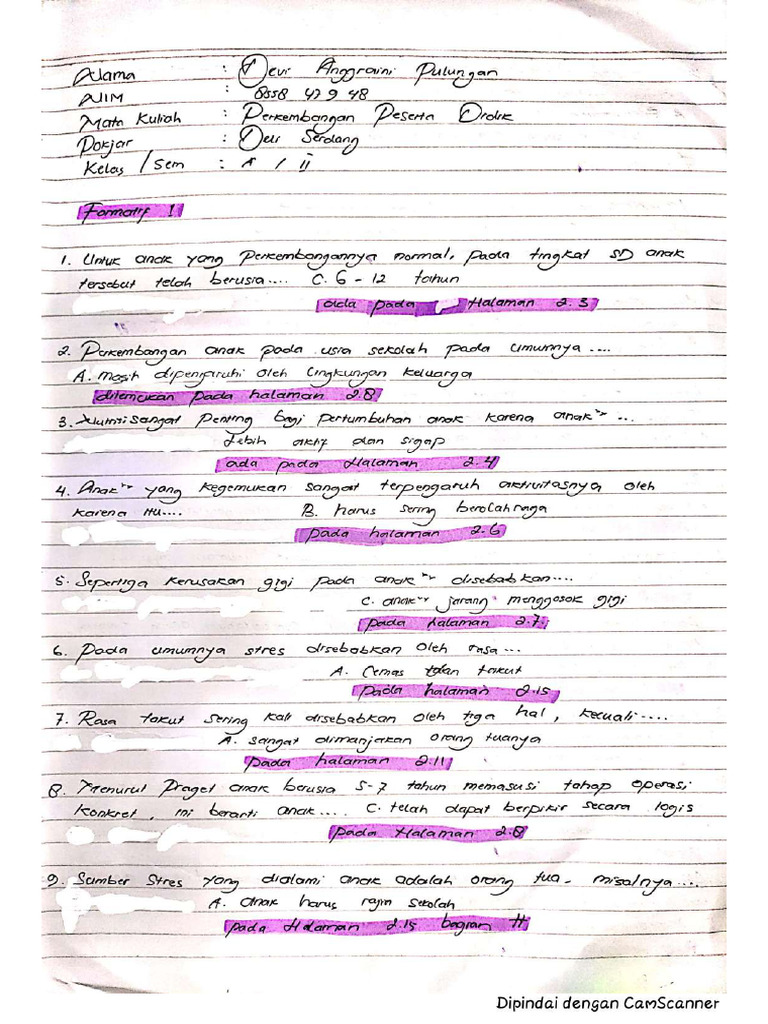 Nama : Devi Anggraini Pulungan
NIM : 8558 42 9 48
Mata Kuliah : Perkembangan Peserta Didik
Pokjar : Deli Serdang
Kelas / Sem : A / II
Formatif 1
1. Untuk anak yang Perkembangannya normal, pada tingkat SD anak
tersebut telah berusia.... C. 6 - 12 tahun
ada pada Halaman 2.3
2. Perkembangan anak pada usia sekolah pada umumnya ....
A. masih dipengaruhi oleh lingkungan keluarga
ditemukan pada halaman 2.8
3. Nutrisi sangat Penting bagi pertumbuhan anak karena anak" ...
Lebih aktif dan sigap
ada pada Halaman 2.4
4. Anak" yang kegemukan sangat terpengaruh aktivitasnya oleh
karena itu.... B. harus sering berolahraga
pada halaman 2.6
5. Sepertiga kerusakan gigi pada anak" disebabkan....
C. anak" jarang menggosok gigi
pada halaman 2.7
6. Pada umumnya stres disebabkan oleh rasa...
A. Cemas dan takut
pada halaman 2.15
7. Rasa takut sering kali disebabkan oleh tiga hal, kecuali....
A. sangat dimanjakan orang tuanya
pada halaman 2.11
8. Menurut Piaget anak berusia 5-7 tahun memasusi tahap operasi
konkret, ini berarti anak.... C. telah dapat berpikir secara logis
pada Halaman 2.8
9. Sumber Stres yang dialami anak adalah orang tua. misalnya....
A. anak harus rajin sekolah
pada Halaman 2.15 bagian
Dipindai dengan CamScanner